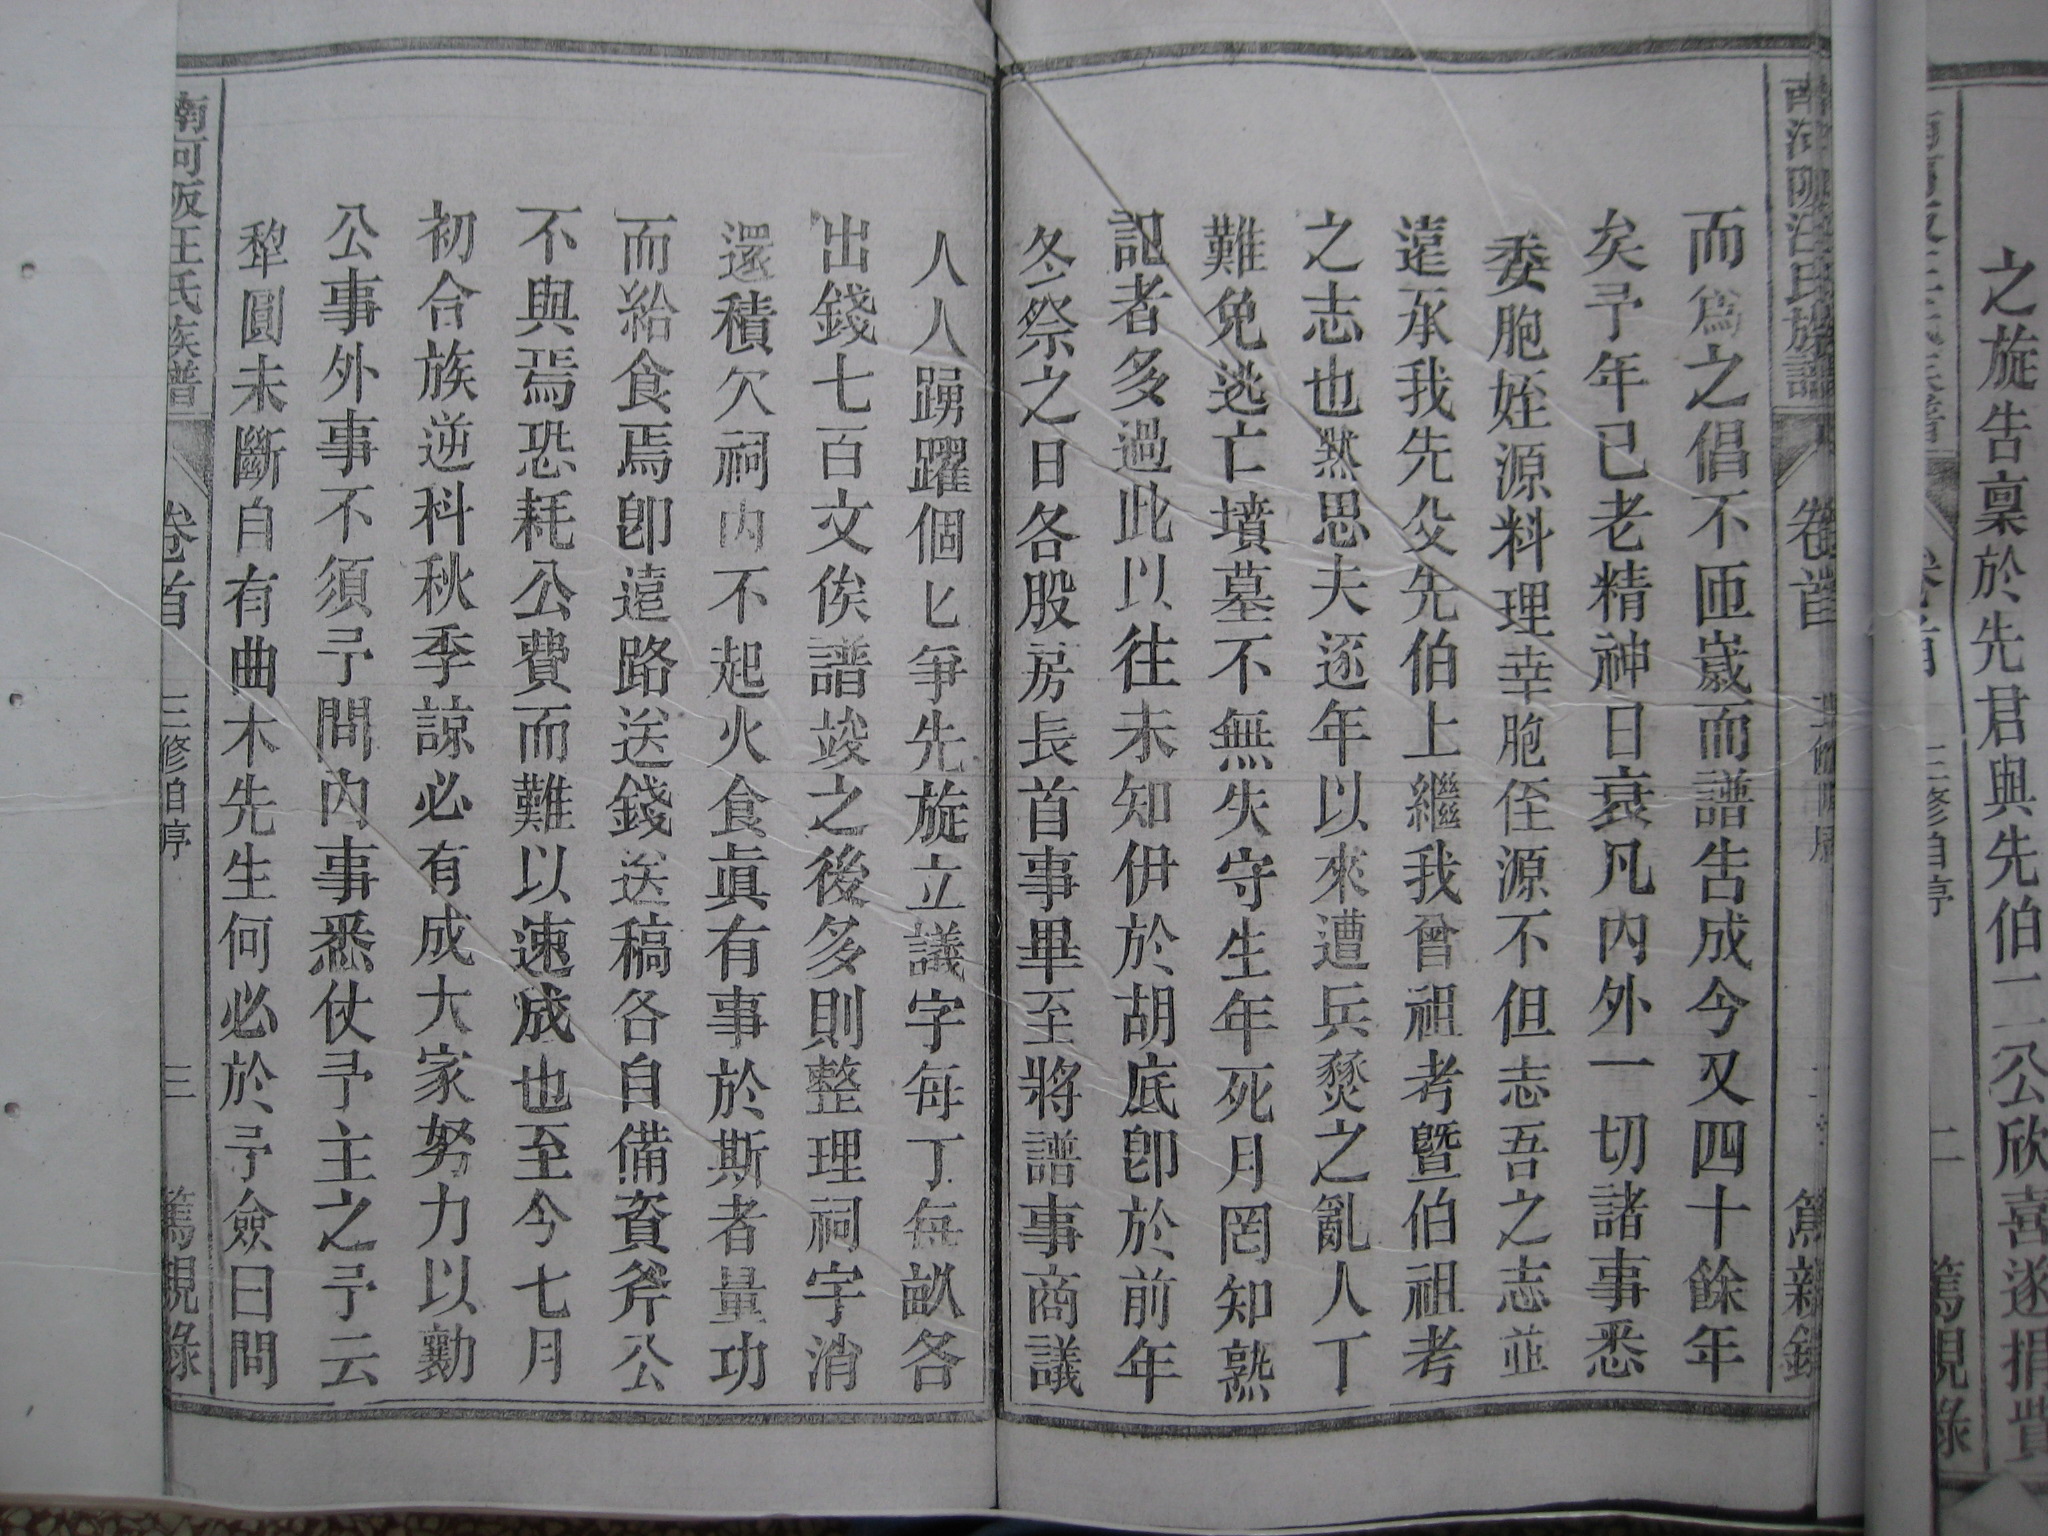 之旋告稟於先君與先伯二公欣喜遂捐貲
三修自序
二
篤親錄
卷首
篤親錄
而爲之倡不匝歲而譜告成今又四十餘年
矣予年已老精神日衰凡內外一切諸事悉
委胞姪源料理幸胞侄源不但志吾之志並
遠承我先父先伯上繼我曾祖考暨伯祖考
之志也熟思夫逐年以來遭兵燹之亂人丁
難免逃亡墳墓不無失守生年死月罔知熟
記者多過此以往未知伊於胡底卽於前年
冬祭之日各股房長首事畢至將譜事商議
人人踴躍個匕爭先旋立議字每丁每畝各
出錢七百文俟譜竣之後多則整理祠宇消
還積欠祠內不起火食眞有事於斯者量功
而給食焉卽遠路送錢送稿各自備資斧公
不與焉恐耗公費而難以速成也至今七月
初合族逆科秋季諒必有成大家努力以勷
公事外事不須予問內事悉仗予主之予云
犂圓未斷自有曲木先生何必於予僉曰問
南河阪汪氏族譜
卷首
三修自序
三
篤親錄